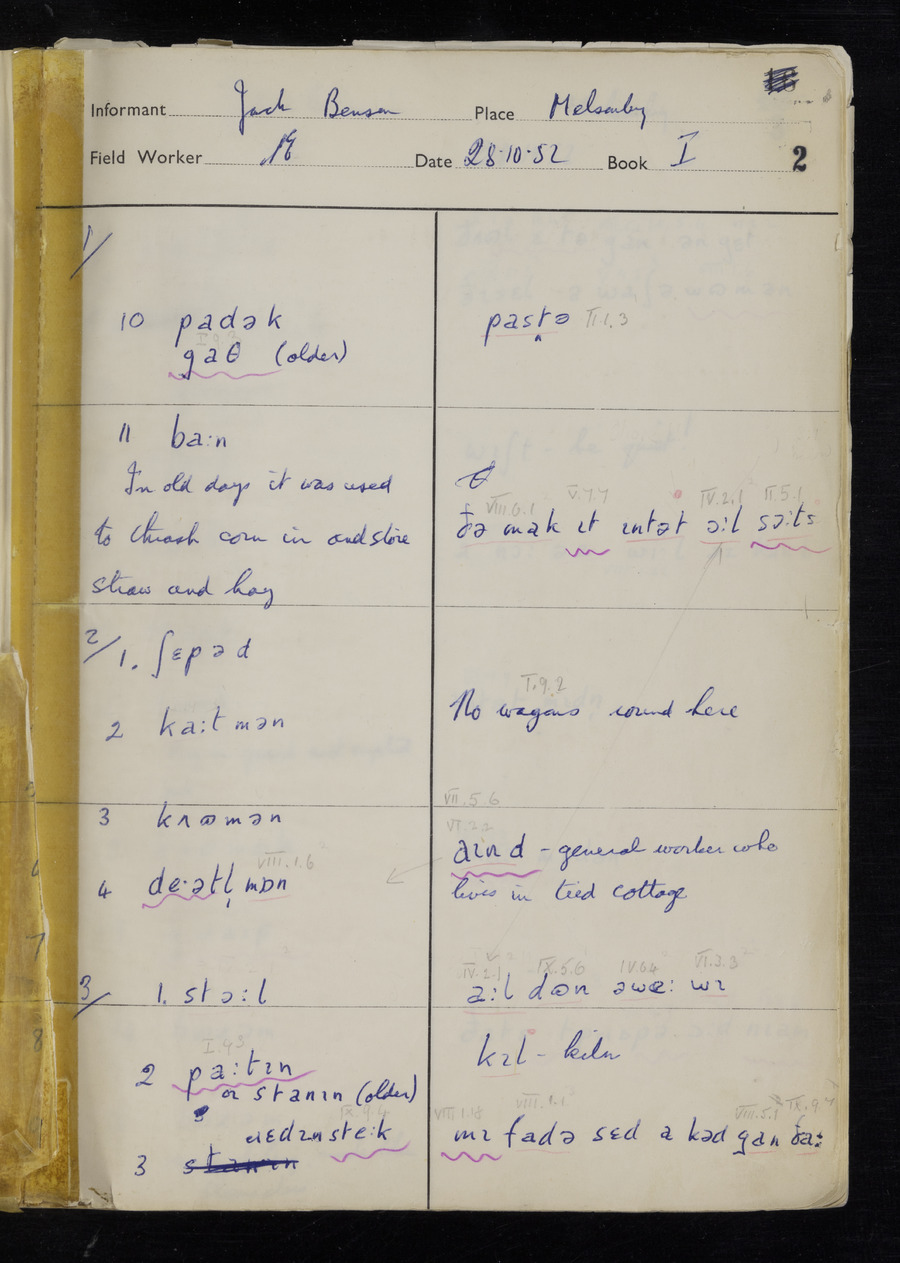 Informant Jack Benson Place Melsonby
Field Worker Date 28·10·52 Book I 2
1/
10 padək
pastə II.1.3
I.9.2
gaθ (older)
11 ba:n
In old days it was used
to thrash corn in and store
straw and hay
VIII.6.1 V.7.7 IV.2.1 II.5.1
ðə mak ɪt ɪntət ə:l sə:ts
2/ 1. ʃɛpəd
2 ka:tmən
I.9.2
No wagons round here
3
4 VIII.1.6
VII.5.6
VI.2.2
aɪnd - general worker who
lives in tied cottage
3/ 1. stə:l
IV.2.1 IX.5.6 IV.6.4 VI.3.3
2 I.4.3
pa:tɪn
or stanɪn (older)
IX.9.4
3
kɪl - kiln
VIII.1.8 VIII.1.1 VIII.5.1 IX.9.4
mɪ fadə sɛd a kəd gan ða: